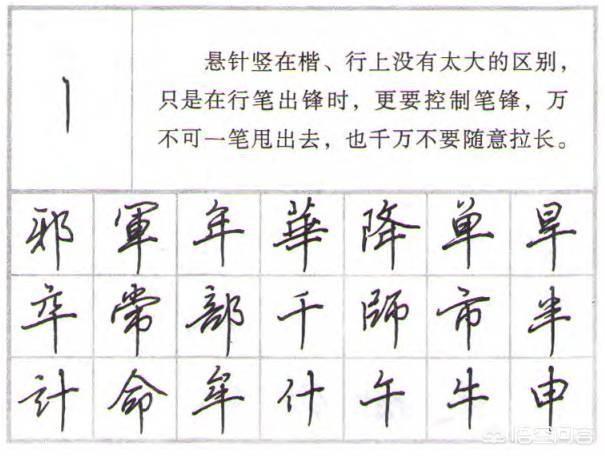 悬针竖在楷、行上没有太大的区别，
只是在行笔出锋时，更要控制笔锋，万
不可一笔甩出去，也千万不要随意拉长。
邪 軍 年 華 降 单 旱
卒 常 部 千 師 市 半
計 命 牟 什 午 牛 申
悟空问答